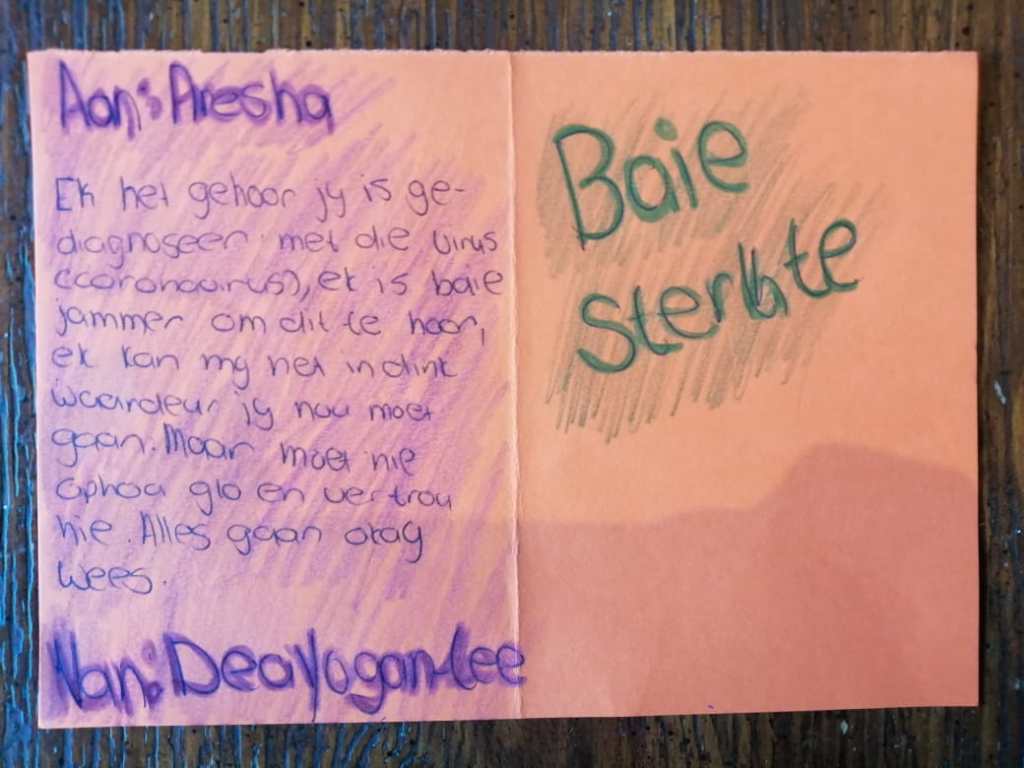 Aan: Aresha
Ek het gehoor jy is ge-
diagnoseer met die virus
(coronavirus), ek is baie
jammer om dit te hoor,
ek kan my net indink
waardeur jy nou moet
gaan. Maar moet nie
ophou glo en vertrou
nie. Alles gaan okay
wees.
Van: Deayogan-lee
Baie
sterkte